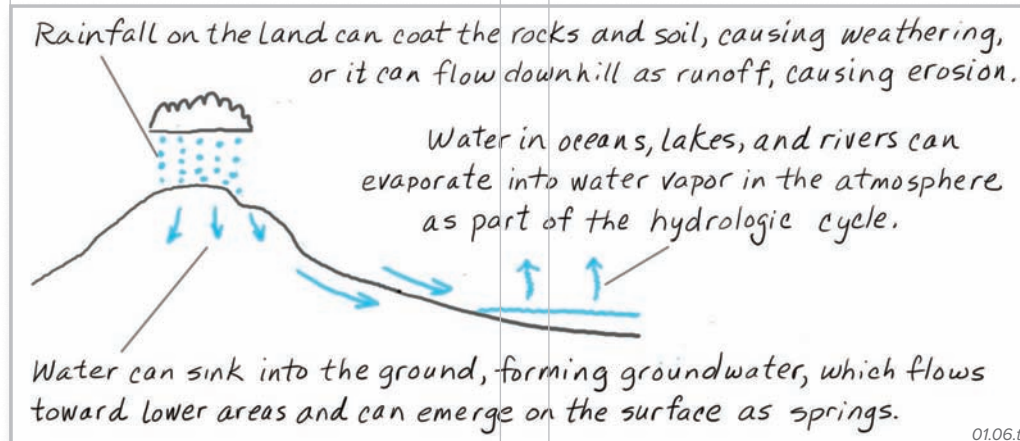 Rainfall on the land can coat the rocks and soil, causing weathering,
or it can flow downhill as runoff, causing erosion.
Water in oceans, lakes, and rivers can
evaporate into water vapor in the atmosphere
as part of the hydrologic cycle.
Water can sink into the ground, forming groundwater, which flows
toward lower areas and can emerge on the surface as springs.
01.06.t